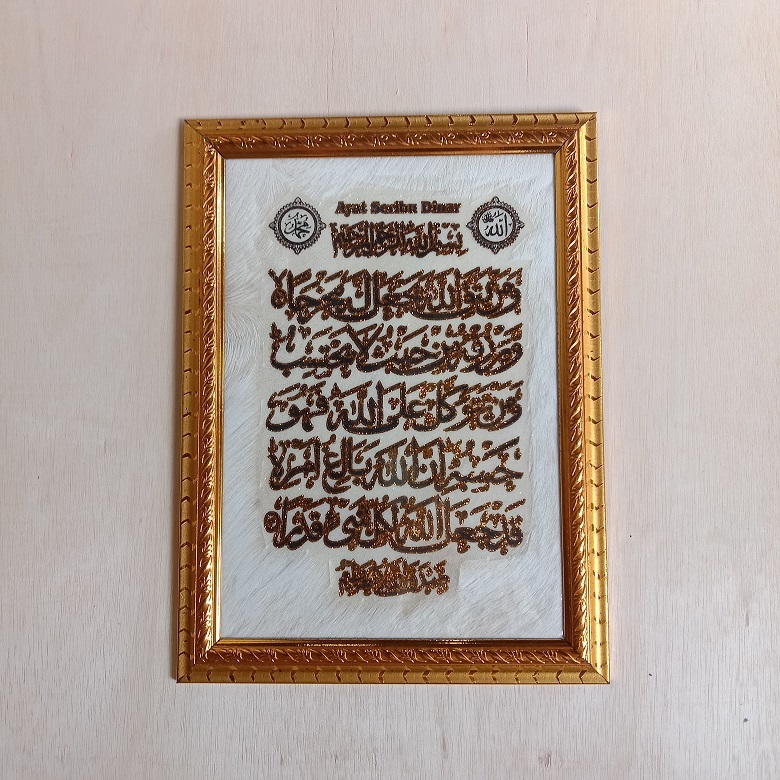 Ayat Seribu Dinar
الله
محمد
بسم الله الرحمن الرحيم
ومن يتق الله يجعل له مخرجا
ويرزقه من حيث لا يحتسب
ومن يتوكل على الله فهو
حسبه إن الله بالغ أمره
قد جعل الله لكل شيء قدرا